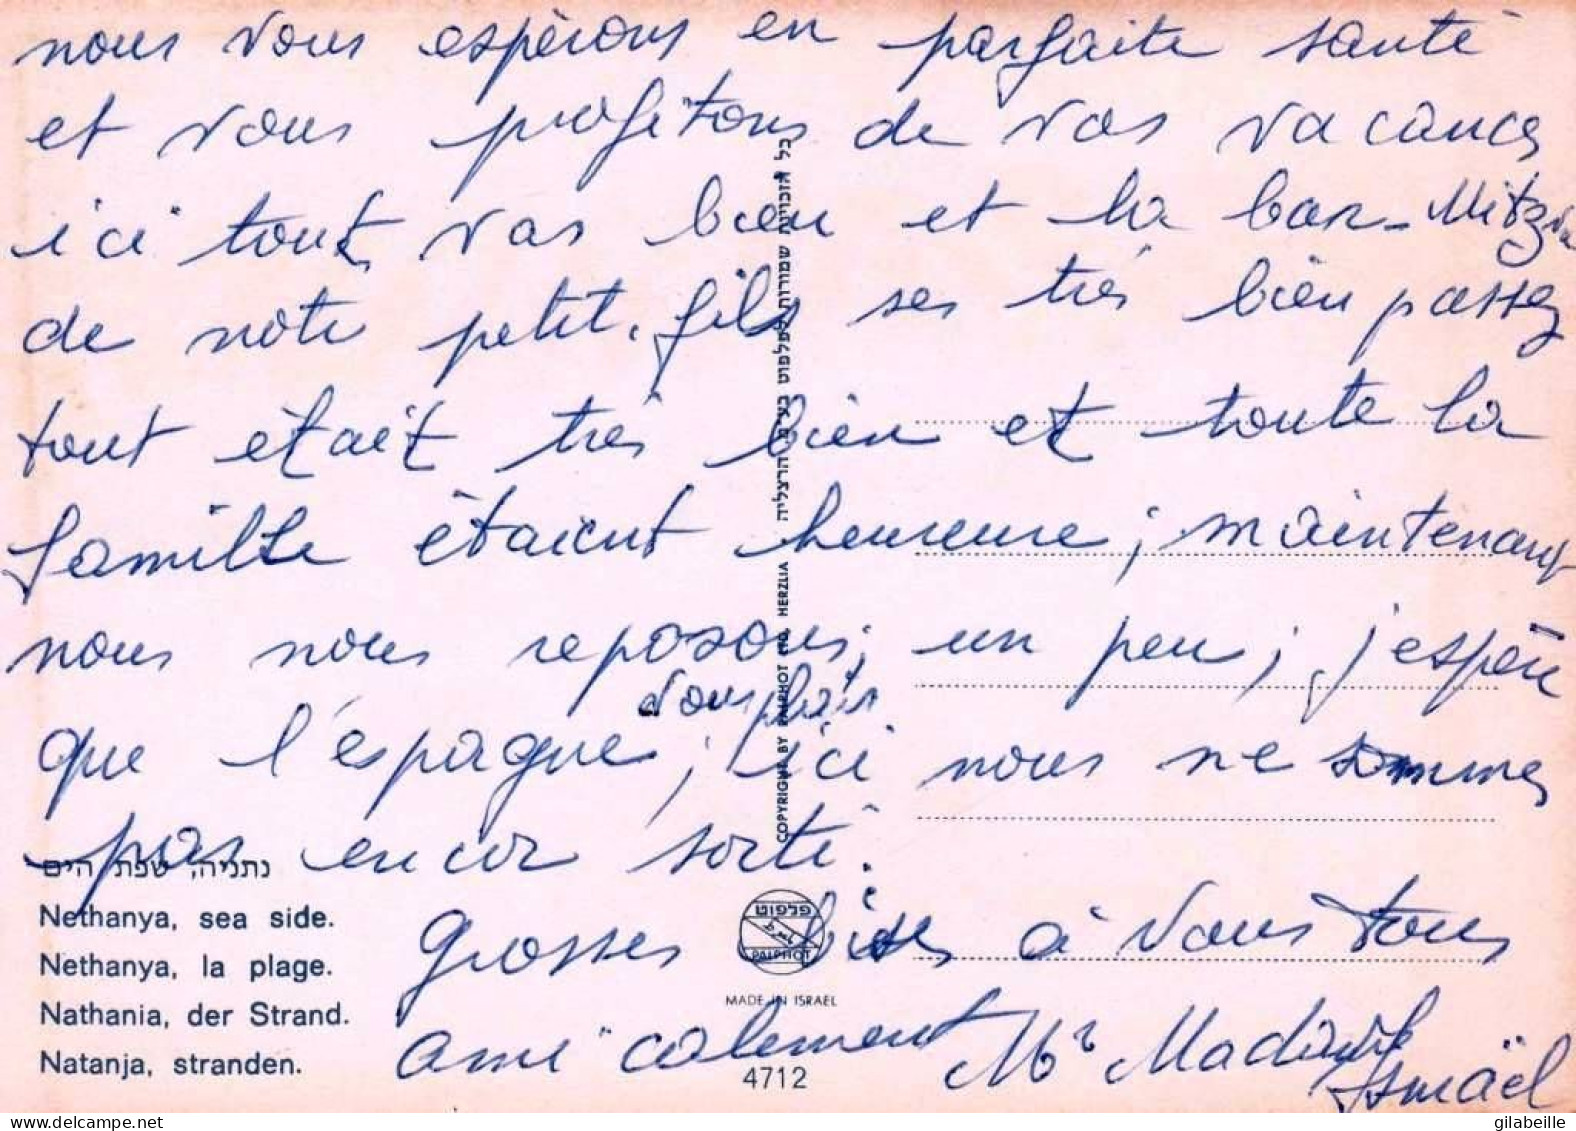 nous vous espèrons en parfaite santé
et vous profitons de vos vacances
ici tout vas bien et la bar-Mitzva
de notre petit-fils ses trés bien passez
tout était trés bien et toute la
famille étaient heureuse; maintenant
nous nous reposons; un peu; j'espère
que l'espagne vous plait; ici nous ne sommes
pas encor sorti.
grosses bises à vous tous
amicalement Mr Madame
Ismaël
נתניה, שפת הים
Nethanya, sea side.
Nethanya, la plage.
Nathania, der Strand.
Natanja, stranden.
כל הזכויות שמורות
COPYRIGHT BY PALPHOT LTD. HERZLIA
פלפוט
PALPHOT
MADE IN ISRAEL
4712
gilabeille